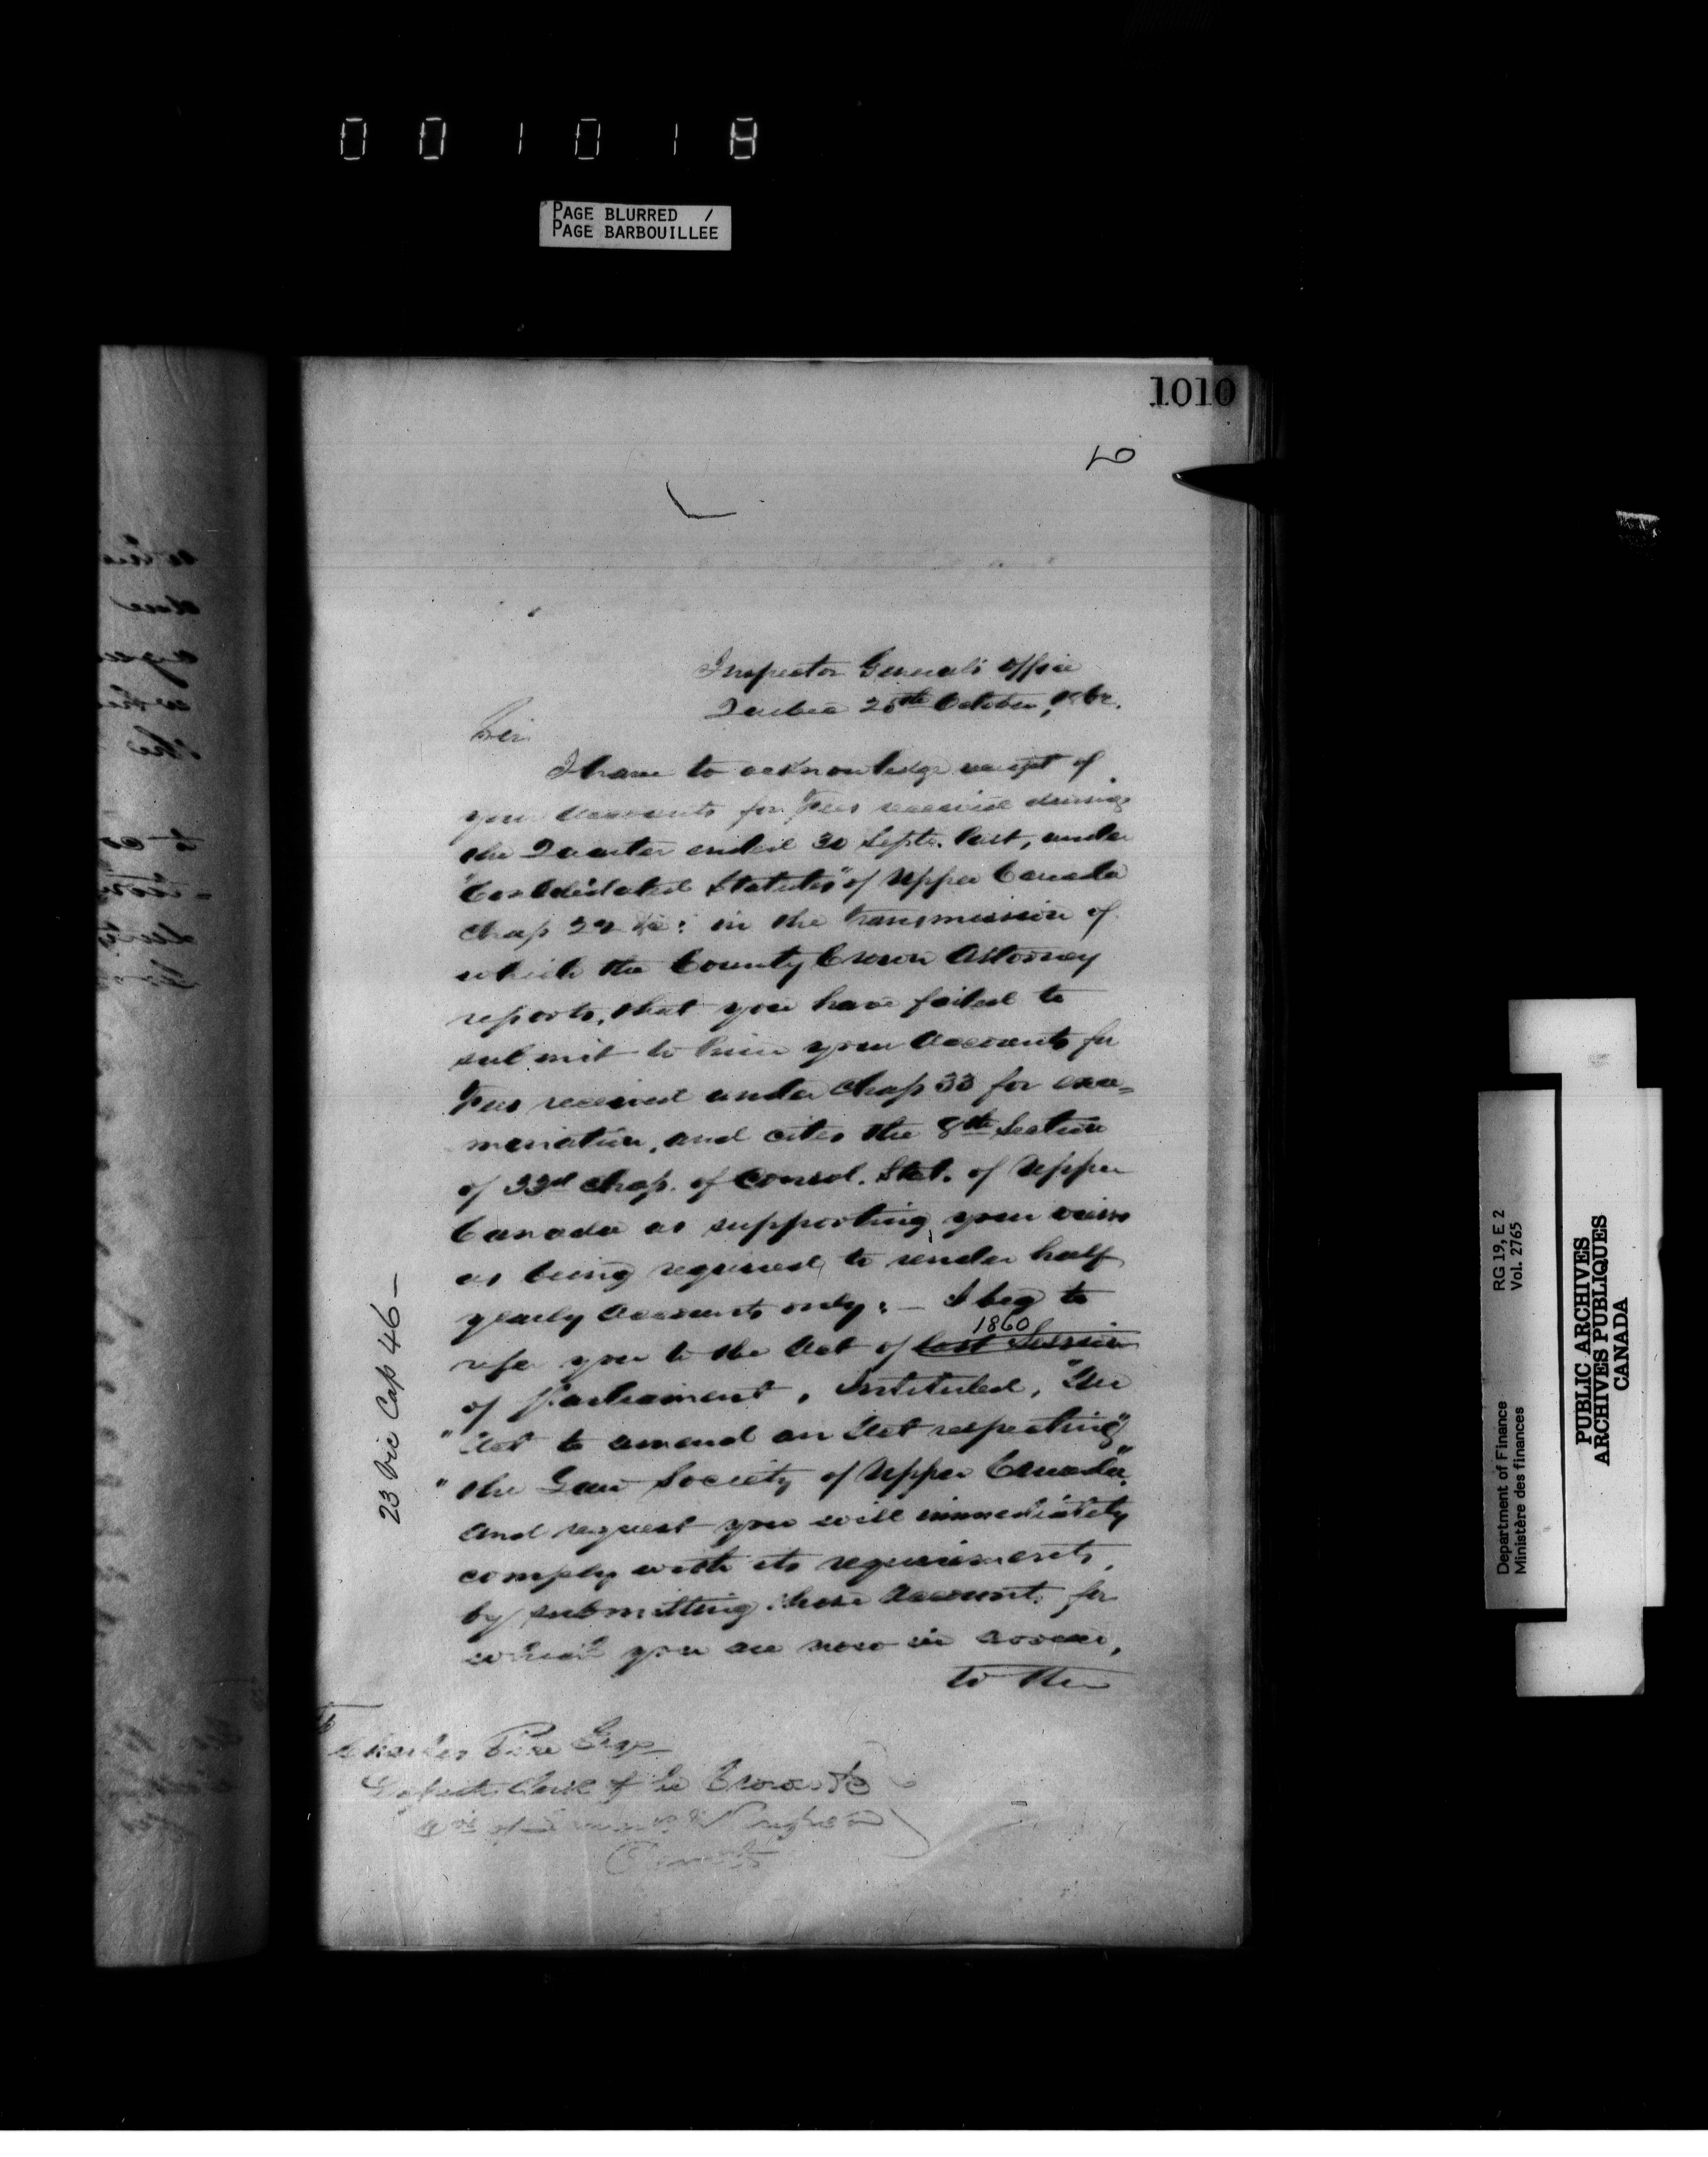 001018
PAGE BLURRED /
PAGE BARBOUILLEE
1010
Inspector General's Office
Quebec 20th October, 186
Sir
I have to acknowledge receipt of
your Accounts for Fees received during
the Quarter ended 30 Septr. last, under
"Consolidated Statutes" of Upper Canada
Chap 22 &c: in the transmission of
which the County Crown Attorney
reports, that you have failed to
submit to him your Accounts for
Fees received under Chap 33 for exa=
mination, and cites the 8th Section
of 33d Chap. of Consol. Stat. of Upper
Canada as supporting your views
as being required to render half
yearly Accounts only: – I beg to
1860
refer you to the Act of last Session
of Parliament, Intituled, "An
"Act to amend an Act respecting"
"the Law Society of Upper Canada",
and request you will immediately
comply with its requirements,
by submitting those Account. for
which you are now in arrear,
to the
23 Vic Cap 46 –
To
Charles Esqr
Deputy Clerk of the Crown &c
RG 19, E 2
Vol. 2765
Department of Finance
Ministère des finances
PUBLIC ARCHIVES
ARCHIVES PUBLIQUES
CANADA